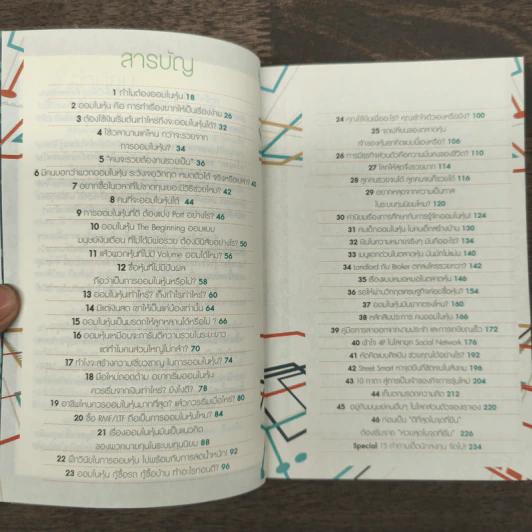 สารบัญ
1 ทำไมต้องออมในหุ้น 18
2 ออมในหุ้น คือ การทำเรื่องยากให้เป็นเรื่องง่าย 26
3 ต้องใช้เงินเริ่มต้นเท่าไหร่ถึงจะออมในหุ้นได้? 32
4 ใช้เวลานานแค่ไหน กว่าจะรวยจาก
การออมในหุ้น? 34
5 "คนจะรวยต้องทนรวยเป็น" 36
6 มีคนบอกว่าพวกออมในหุ้น ระวังเจอวิกฤต หมดตัวได้ จริงหรือเปล่า? 40
7 อยากซื้อในเวลาที่ไม่ขาดทุนเยอะมีวิธีช่วยไหม? 42
8 คนที่จะออมในหุ้นได้ 44
9 การออมในหุ้นที่ดี ต้องแบ่ง Port อย่างไร? 46
10 ออมในหุ้น The Beginning ออมแบบ
มนุษย์เงินเดือน ที่ไม่ได้มีพ่อรวย ต้องมีนิสัยอย่างไร? 50
11 แล้วพวกหุ้นที่ไม่มี Volume ออมได้ไหม? 56
12 ซื้อหุ้นที่ไม่มีปันผล
ถือว่าเป็นการออมในหุ้นหรือไม่? 58
13 ออมในหุ้นเท่าไหร่? ถึงกำไรเท่าไหร่? 60
14 มีแต่เงินสด เขาให้เป็นแค่น้องเท่านั้น 64
15 ออมในหุ้นเป็นมรดกให้ลูกหลานได้หรือไม่? 66
16 ออมในหุ้นเหมือนจะการันตีความรวยในระยะยาว
แต่ทำไมคนส่วนใหญ่ไม่กล้า? 70
17 ทำไงจะสร้างความเชี่ยวชาญ ในการออมในหุ้น? 74
18 มือใหม่ถอดด้าม อยากเริ่มออมในหุ้น
ควรเริ่มจากเงินเท่าไหร่? ยังไงดี? 78
19 อาชีพไหนควรออมในหุ้นมากที่สุด? แล้วควรเริ่มเมื่อไหร่? 80
20 ซื้อ RMF/LTF ถือเป็นการออมในหุ้นไหม? 84
21 เรื่องออมในหุ้นมันเป็นแนวคิด
ของพวกนายทุนในระบบทุนนิยม 88
22 ฝึกวินัยในการออมหุ้น ไปพร้อมกับการลดน้ำหนัก! 92
23 ออมในหุ้น กู้ซื้อรถ กู้ซื้อบ้าน ทำอะไรก่อนดี? 96
24 คุณใช้เงินซื้ออะไร? คุณเข้าใจตัวเองหรือยัง? 100
ทำร้ายคุณหากคิดแบบนี้อยู่หรือเปล่า? 106
26 การมีธุรกิจส่วนตัวคือความมั่นคงของชีวิต? 110
27 โลกให้สุดยิ่งรวยมาก 114
28 ลูกคนรวยจนได้ ลูกคนจนก็รวยได้ 116
29 อยากหลุดจากความเป็นทาส
ในระบบทุนนิยมไหม? 120
30 ค่านิยมเรื่องการศึกษากับการรู้จักออมในหุ้น! 124
31 คนเด็กออมในหุ้น ในคนเด็กสร้างบ้าน 130
32 เงินในความหมายจริงๆ มันคืออะไร? 134
34 landlord กับ Broker ตกลงใครรวยกว่า? 142
36 รอให้ผ่านวิกฤตเศรษฐกิจค่อยซื้อหุ้น? 154
38 หลักสัมประการ คนออมในหุ้น 166
40 เข้าใจ หุ้น ในโลกยุค Social Network 176
42 Street Smart หาจุดยืนที่ชัดเจนในสังคม 196
43 10 คาถา สู่การเป็นเจ้าของกิจการรุ่นใหม่ 204
44 เก็บตกมรดกความคิด 210
45 อยู่กับมนุษย์คนอื่นๆ ในโลกส่วนตัวของเราเอง 220
46 ก่อนเป็น "ดีที่สุดในจุดที่ยืน"
ต้องเริ่มจาก "ห่วยสุดในจุดที่ยืน" 226
Special 15 คำถามเด็ดนักลงทุน จัดไป! 234